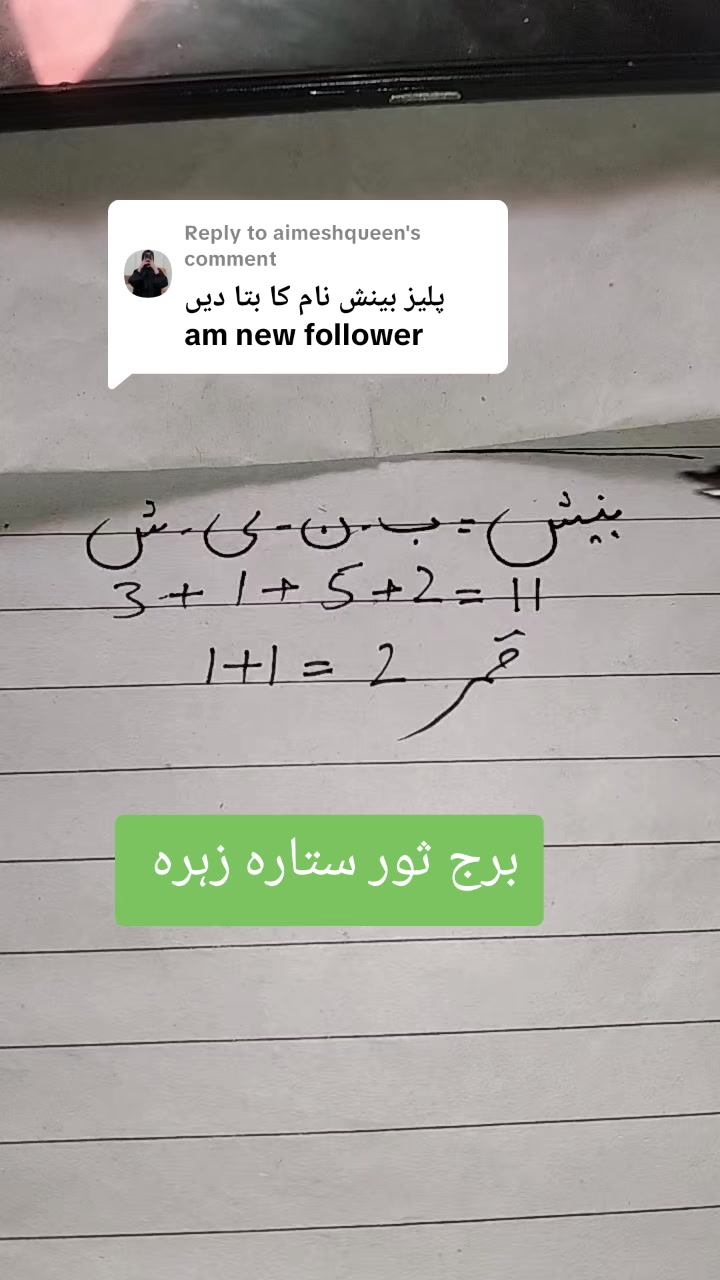 Reply to aimeshqueen's
comment
پلیز بینش نام کا بتا دیں
am new follower
بنیش = ب - ن - ی - ش
3 + 1 + 5 + 2 = 11
1+1 = 2 قمر
برج ثور ستارہ زہرہ